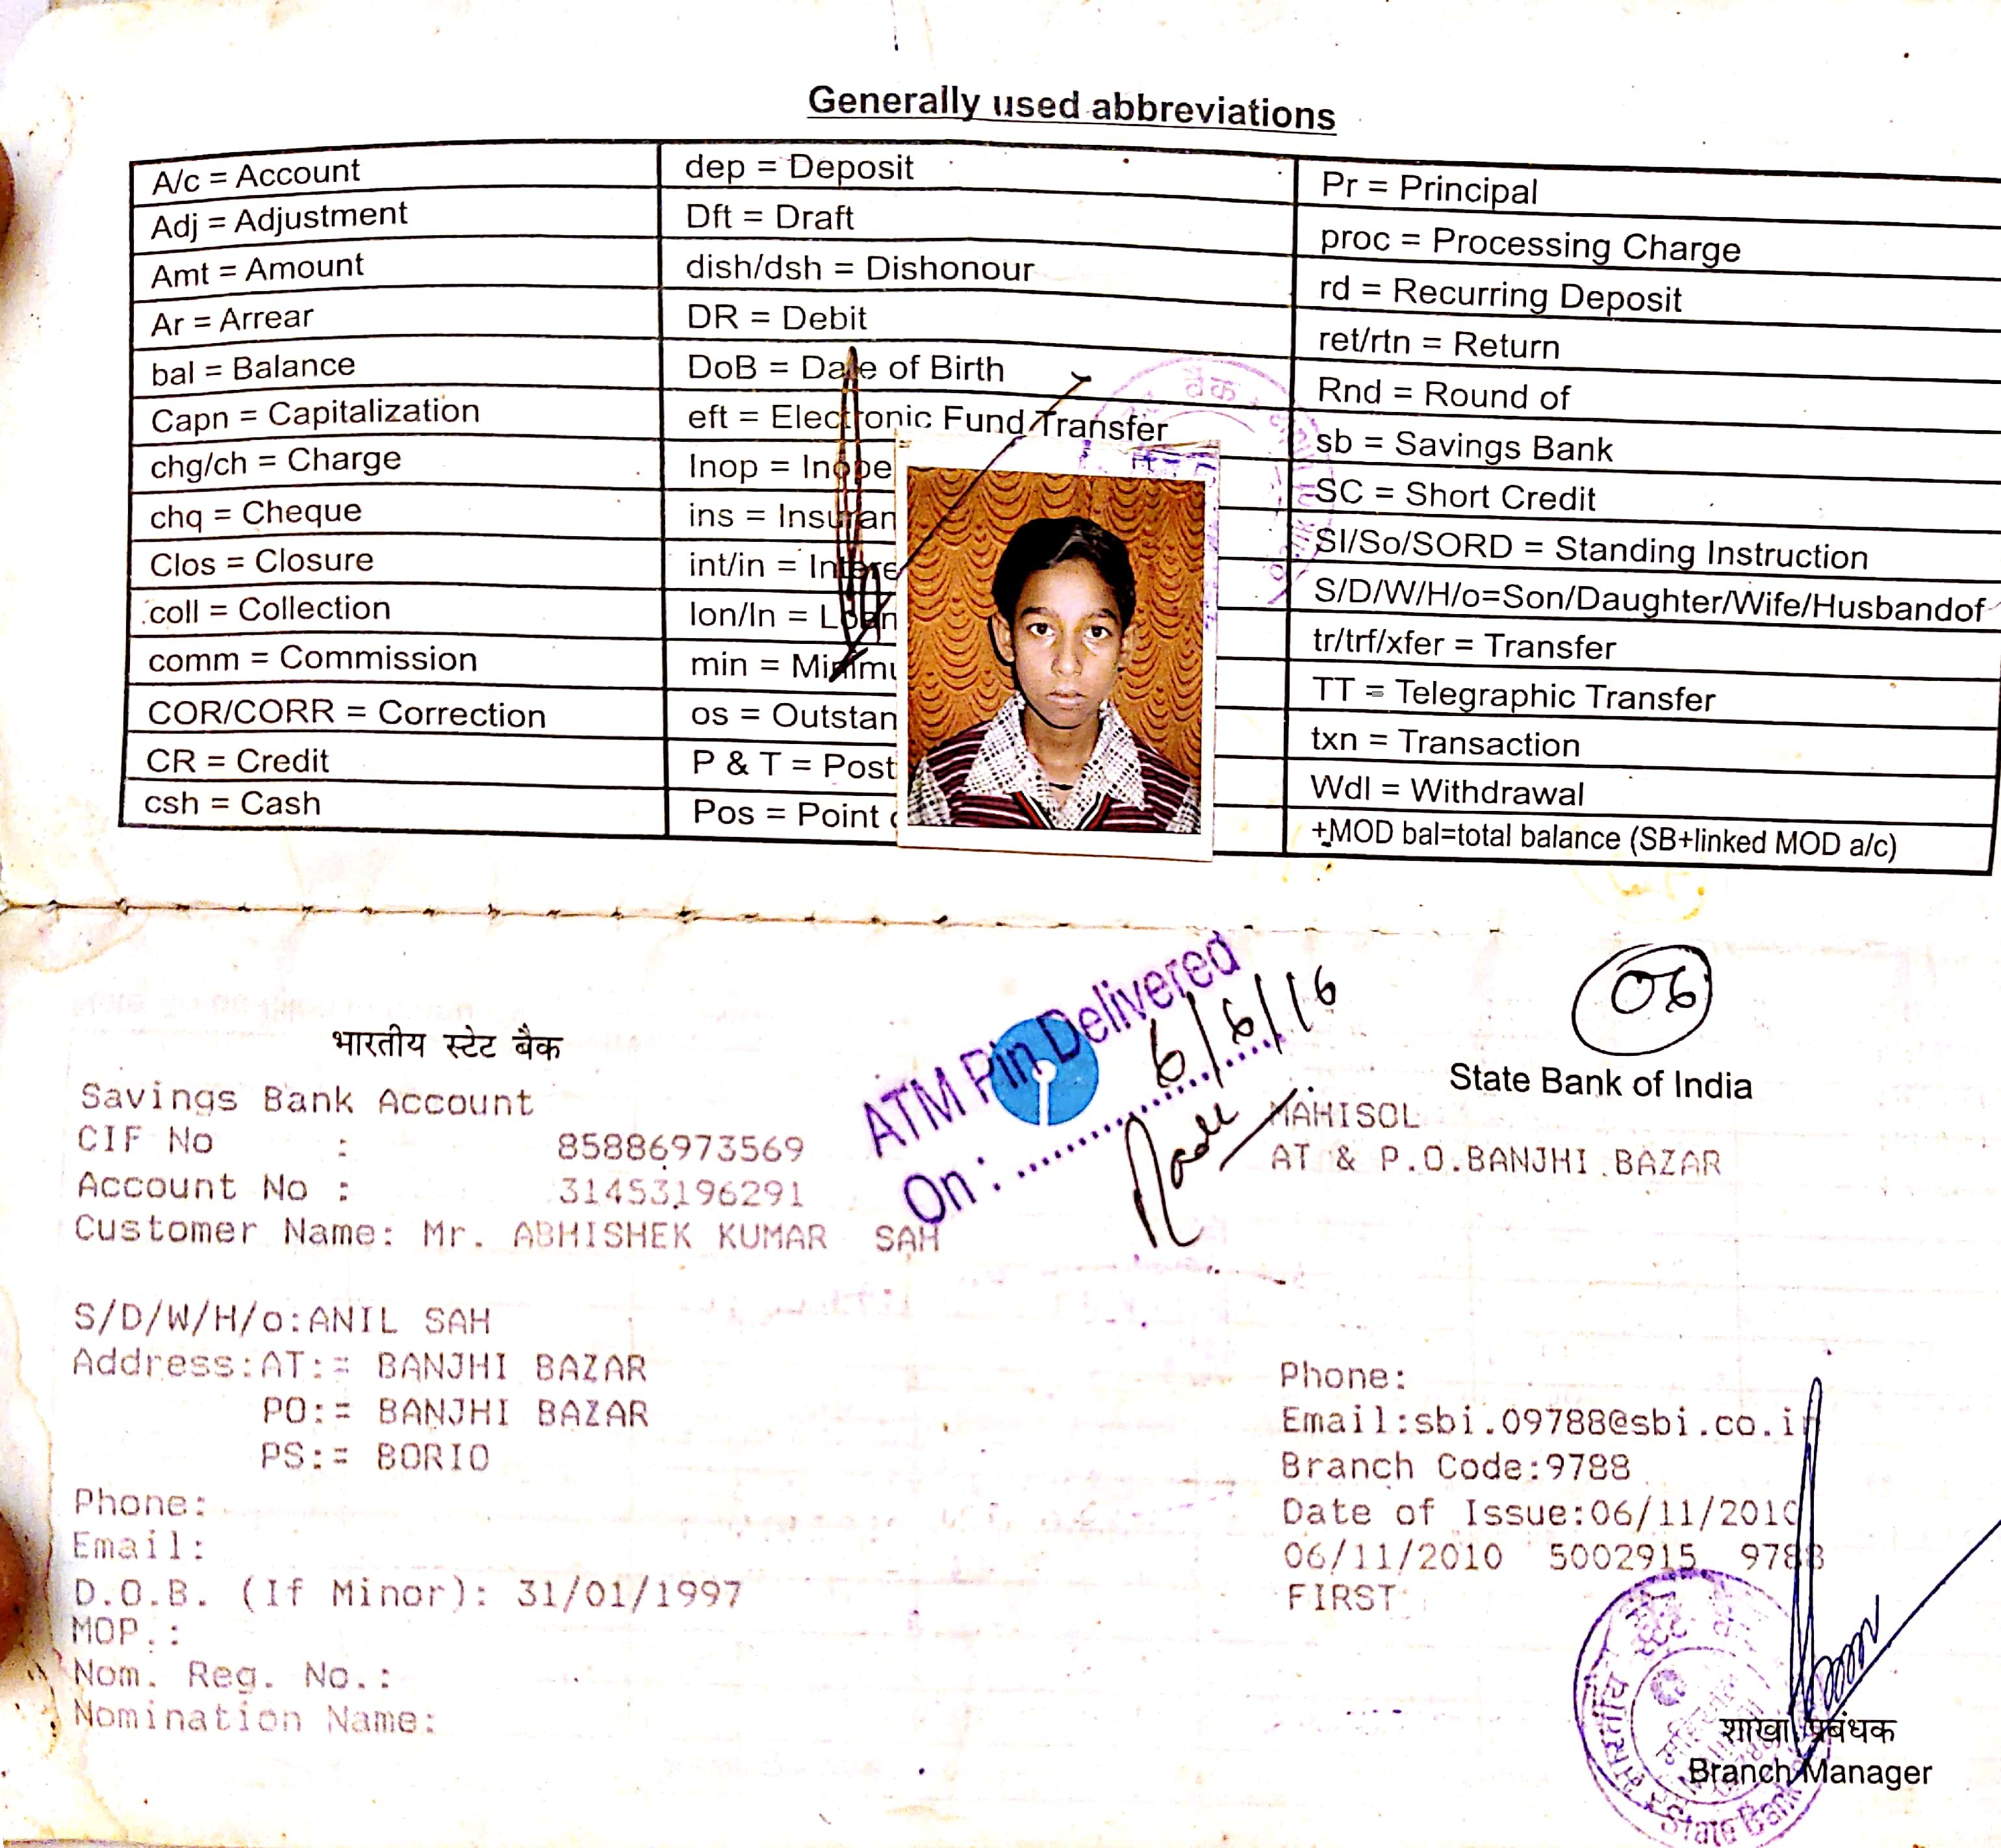 Generally used abbreviations
A/c = Account
Adj = Adjustment
Amt = Amount
Ar = Arrear
bal = Balance
Capn = Capitalization
chg/ch = Charge
chq = Cheque
Clos = Closure
coll = Collection
comm = Commission
COR/CORR = Correction
CR = Credit
csh = Cash
dep = Deposit
Dft = Draft
dish/dsh = Dishonour
DR = Debit
DoB = Date of Birth
eft = Electronic Fund Transfer
Inop = Inope
ins = Insuran
int/in = Intere
lon/ln = Loan
min = Minimu
os = Outstan
P & T = Post
Pos = Point
Pr = Principal
proc = Processing Charge
rd = Recurring Deposit
ret/rtn = Return
Rnd = Round of
sb = Savings Bank
SC = Short Credit
SI/So/SORD = Standing Instruction
S/D/W/H/o=Son/Daughter/Wife/Husbandof
tr/trf/xfer = Transfer
TT = Telegraphic Transfer
txn = Transaction
Wdl = Withdrawal
+MOD bal=total balance (SB+linked MOD a/c)
भारतीय स्टेट बैंक
Savings Bank Account
CIF No : 85886973569
Account No : 31453196291
Customer Name: Mr. ABHISHEK KUMAR SAH
S/D/W/H/o:ANIL SAH
Address:AT:= BANJHI BAZAR
PO:= BANJHI BAZAR
PS:= BORIO
Phone:
Email:
D.O.B. (If Minor): 31/01/1997
MOP.:
Nom. Reg. No.:
Nomination Name:
ATM Pin Delivered
On : 6/6/16
06
State Bank of India
MAHISOL
AT & P.O.BANJHI BAZAR
Phone:
Email:sbi.09788@sbi.co.in
Branch Code:9788
Date of Issue:06/11/2010
06/11/2010 5002915 9788
FIRST
शाखा प्रबंधक
Branch Manager
भारतीय स्टेट
State Bank